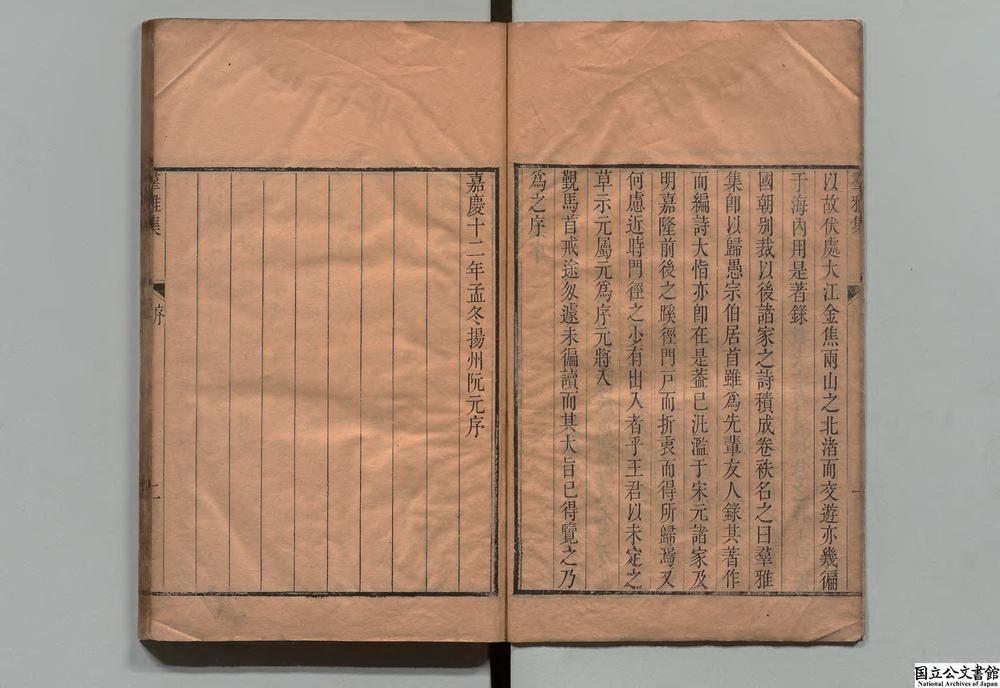 羣雅集
以故伏處大江金焦兩山之北渚而交遊亦幾徧
于海內用是著錄
國朝別裁以後諸家之詩積成卷袟名之曰羣雅
集卽以歸愚宗伯居首雖爲先輩友人錄其著作
而編詩大恉亦卽在是葢已汎濫于宋元諸家及
明嘉隆前後之蹊徑門戸而折衷而得所歸焉又
何慮近時門徑之少有出入者乎王君以未定之
草示元屬元爲序元將入
覲馬首戒途匆遽未徧讀而其大旨已得覽之乃
爲之序
嘉慶十二年孟冬揚州阮元序
羣雅集
序
国立公文書館
National Archives of Japan